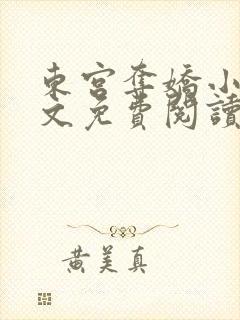 東宮奪嬌小
文免費閱讀
黃美真